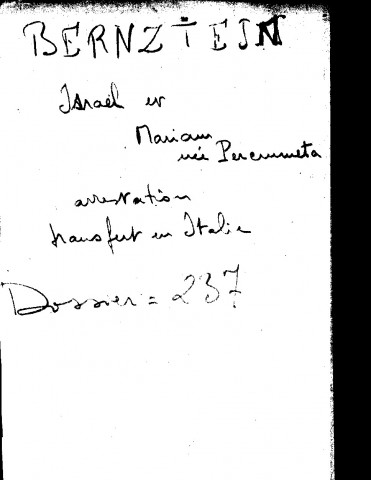 BERNZTEIN
Israël et
Mariam
née Percummeta
arrestation
transfert en Italie
Dossier = 237